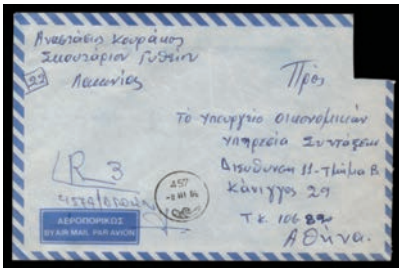 Αναστάσιος Κουράκος
Σκουτάριον Γυθείου
22
Λακωνίας
Πρός
Τό Υπουργείο Οικονομικών
Υπηρεσία Συντάξεων
Διεύθυνση 11-Τμήμα Β
Κάνιγγος 29
Τ.Κ. 106 82
Αθήνα.
R 3
457
ΑΕΡΟΠΟΡΙΚΩΣ
BY AIR MAIL PAR AVION